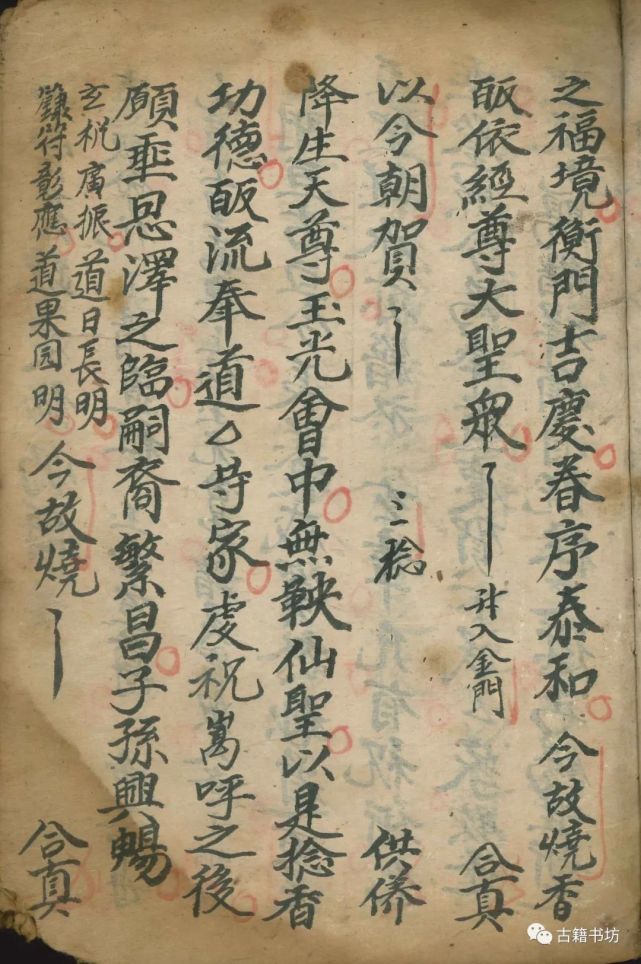 之福境衡門吉慶眷序泰和 今故燒香
皈依經尊大聖眾 升入金門 合真
以今朝賀 三捻 供養
降生天尊玉光會中無鞅仙聖以是捻香
功德皈流奉道厶等家虔祝嵩呼之後
願垂恩澤之臨嗣裔繁昌子孫興暢
玄祝廣振道日長明
籙符彰應道果圓明 今故燒 合真
古籍书坊